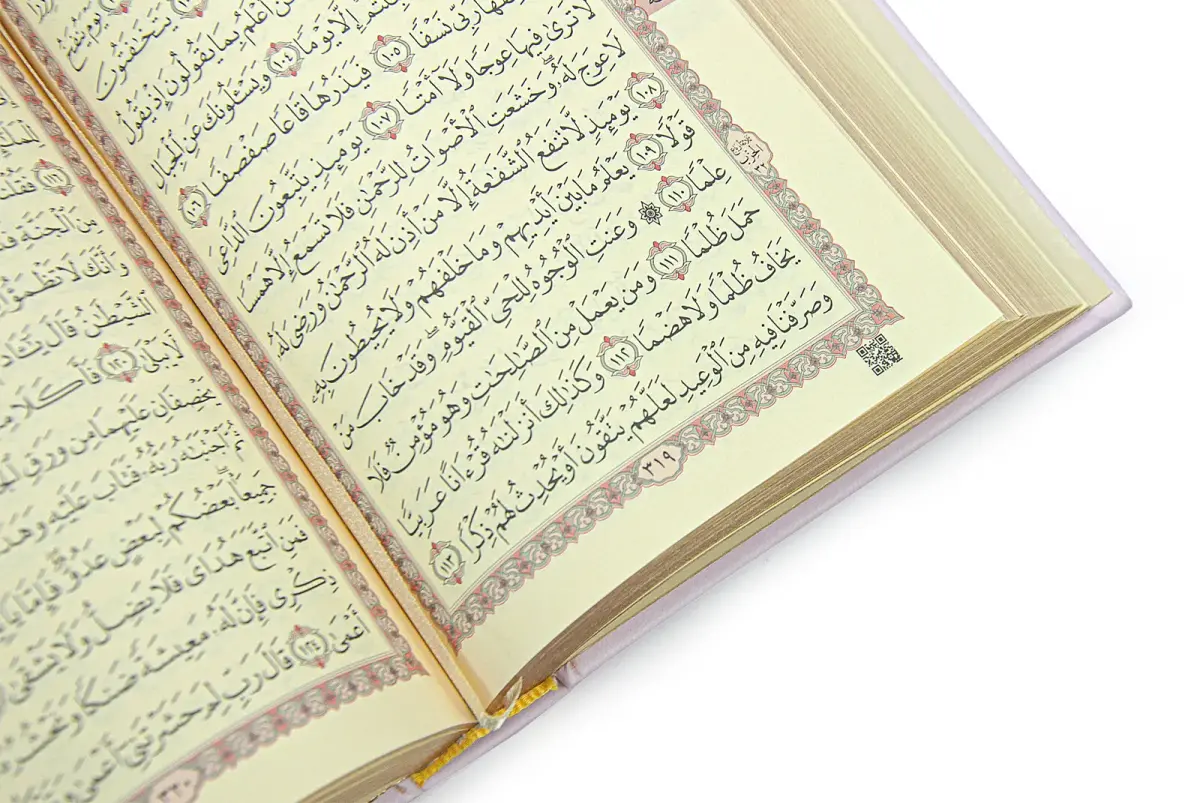 يَتَخَٰفَتُونَ
أَعْلَمُ بِمَا يَقُولُونَ إِذْ يَقُولُ
إِلَّا يَوْمًا ١٠٤ وَيَسْـَٔلُونَكَ عَنِ ٱلْجِبَالِ
رَبِّى نَسْفًا ١٠٥ فَيَذَرُهَا قَاعًا صَفْصَفًا ١٠٦
لَّا تَرَىٰ فِيهَا عِوَجًا وَلَآ أَمْتًا ١٠٧ يَوْمَئِذٍ يَتَّبِعُونَ ٱلدَّاعِىَ
لَا عِوَجَ لَهُۥ ۖ وَخَشَعَتِ ٱلْأَصْوَاتُ لِلرَّحْمَٰنِ فَلَا تَسْمَعُ إِلَّا هَمْسًا
١٠٨ يَوْمَئِذٍ لَّا تَنفَعُ ٱلشَّفَٰعَةُ إِلَّا مَنْ أَذِنَ لَهُ ٱلرَّحْمَٰنُ وَرَضِىَ لَهُۥ
قَوْلًا ١٠٩ يَعْلَمُ مَا بَيْنَ أَيْدِيهِمْ وَمَا خَلْفَهُمْ وَلَا يُحِيطُونَ بِهِۦ
عِلْمًا ١١٠ ۞ وَعَنَتِ ٱلْوُجُوهُ لِلْحَىِّ ٱلْقَيُّومِ ۖ وَقَدْ خَابَ مَنْ
حَمَلَ ظُلْمًا ١١١ وَمَن يَعْمَلْ مِنَ ٱلصَّٰلِحَٰتِ وَهُوَ مُؤْمِنٌ فَلَا
يَخَافُ ظُلْمًا وَلَا هَضْمًا ١١٢ وَكَذَٰلِكَ أَنزَلْنَٰهُ قُرْءَانًا عَرَبِيًّا
وَصَرَّفْنَا فِيهِ مِنَ ٱلْوَعِيدِ لَعَلَّهُمْ يَتَّقُونَ أَوْ يُحْدِثُ لَهُمْ ذِكْرًا ١١٣
٣١٩
١١٦
مِنَ ٱلْجَنَّةِ
وَأَنَّكَ لَا تَظْمَؤُا۟
ٱلشَّيْطَٰنُ قَالَ
لَّا يَبْلَىٰ ١٢٠ فَأَكَلَا
يَخْصِفَانِ عَلَيْهِمَا مِن وَرَقِ
ثُمَّ ٱجْتَبَٰهُ رَبُّهُۥ فَتَابَ عَلَيْهِ
جَمِيعًۢا ۖ بَعْضُكُمْ لِبَعْضٍ عَدُوٌّ ۖ فَإِمَّا
فَمَنِ ٱتَّبَعَ هُدَاىَ فَلَا يَضِلُّ وَلَا يَشْقَىٰ
ذِكْرِى فَإِنَّ لَهُۥ مَعِيشَةً ضَنكًا
أَعْمَىٰ ١٢٤ قَالَ رَبِّ لِمَ حَشَرْتَنِىٓ أَعْمَىٰ
٣٢٠